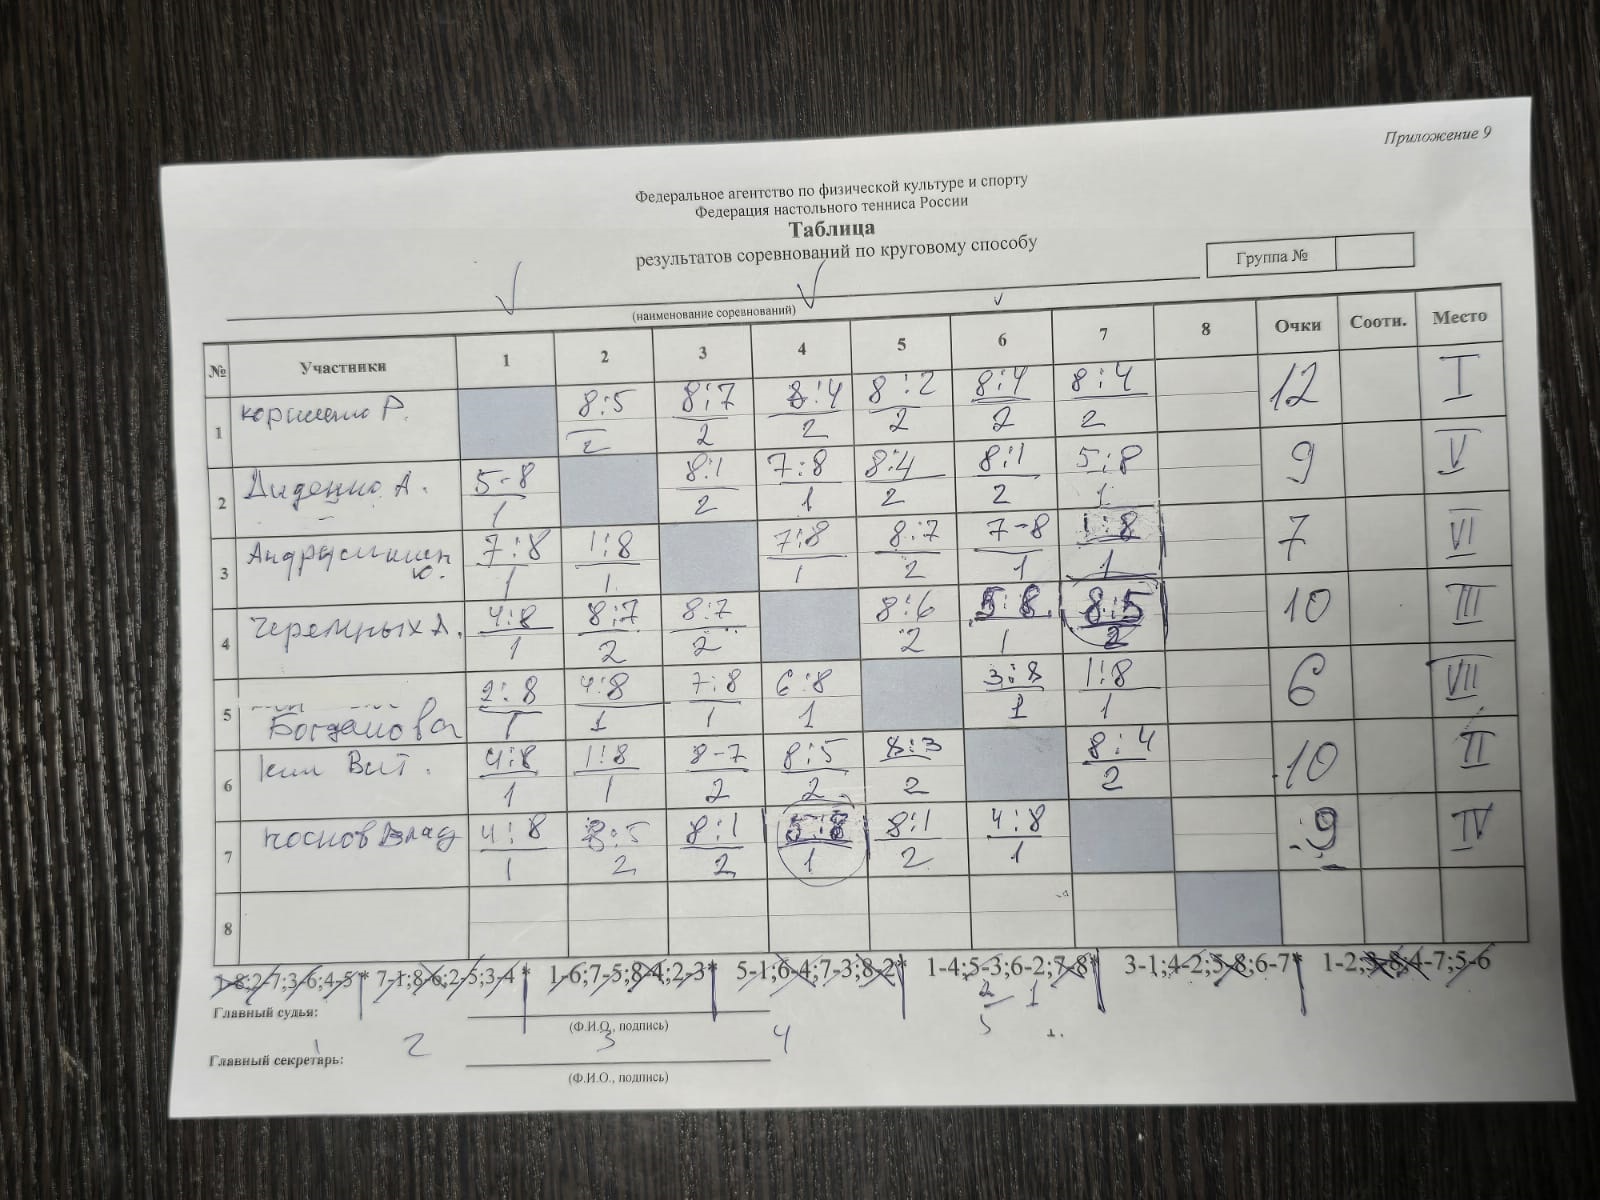 Приложение 9
Федеральное агентство по физической культуре и спорту
Федерация настольного тенниса России
Таблица
результатов соревнований по круговому способу
Группа №
(наименование соревнований)
№ Участники 1 2 3 4 5 6 7 8 Очки Соотн. Место
8:5 8:7 8:4 8:2 8:4 8:4
1 Р. 12 I
2 2 2 2 2 2
5-8 8:1 7:8 8:4 8:1 5:8
2 Диденко А. 9 V
1 2 1 2 2 1
7:8 1:8 7:8 8:7 7-8 1:8
3 Ю. 7 VI
1 1 1 2 1 1
4:8 8:7 8:7 8:6 5:8 8:5
4 Черемных А. 10 III
1 2 2 2 1 2
2:8 4:8 7:8 6:8 3:8 1:8
5 Богданова 6 VII
1 1 1 1 1 1
4:8 1:8 8-7 8:5 8:3 8:4
6 Ким Вит. 10 II
1 1 2 2 2 2
4:8 8:5 8:1 5:8 8:1 4:8
7 Влад 9 IV
1 2 2 1 2 1
8
1-8;2-7;3-6;4-5* 7-1;8-6;2-5;3-4* 1-6;7-5;8-4;2-3* 5-1;6-4;7-3;8-2* 1-4;5-3;6-2;7-8* 3-1;4-2;5-8;6-7* 1-2,3-8,4-7;5-6
2 1
Главный судья:
(Ф.И.О., подпись)
2 3 4 5
Главный секретарь:
(Ф.И.О., подпись)